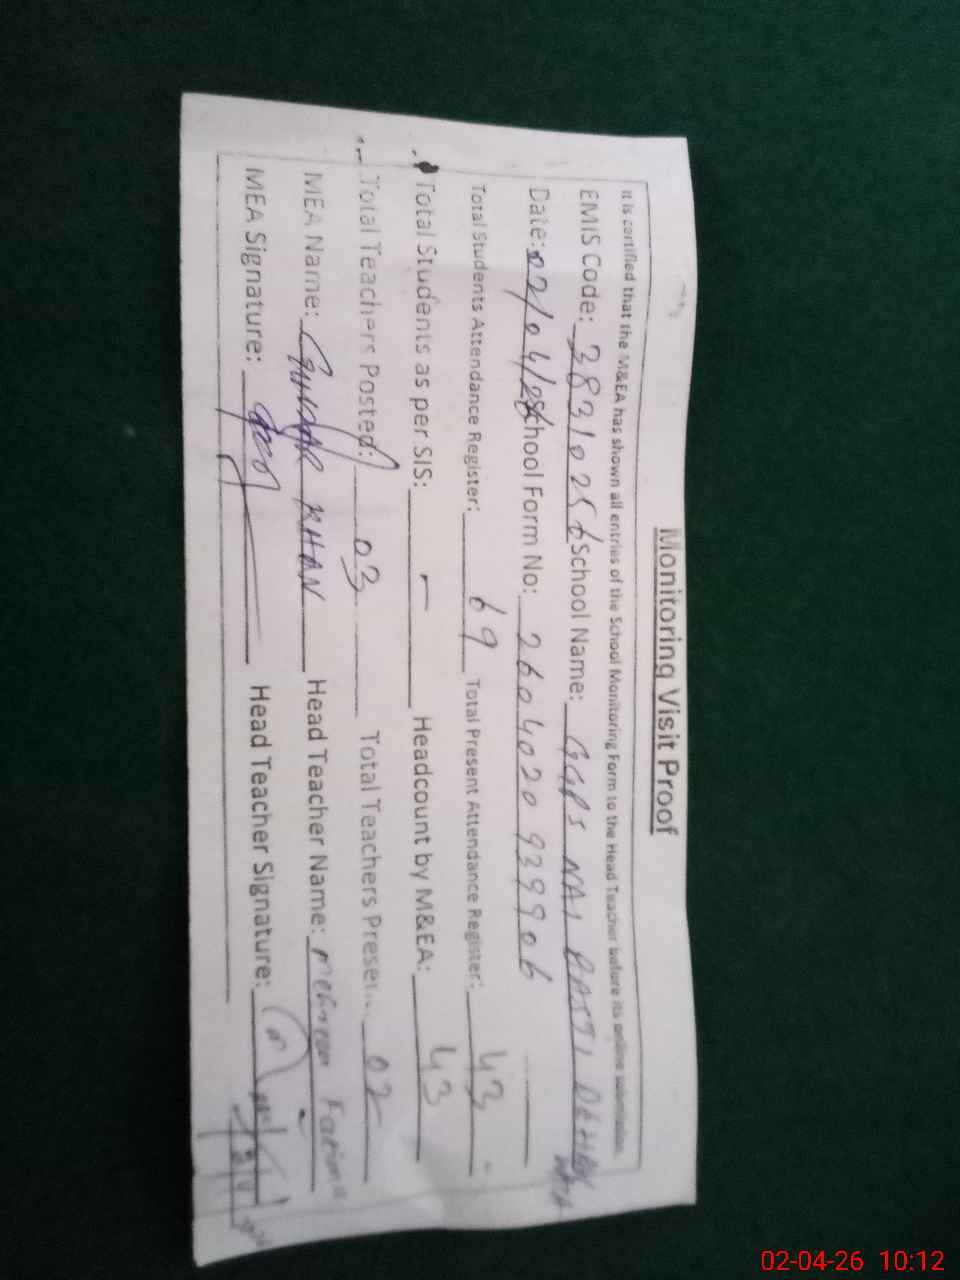 Monitoring Visit Proof
It is certified that the M&EA has shown all entries of the School Monitoring Form to the Head Teacher before its online submission.
EMIS Code: 38310256 School Name: GGPS NAI BASTI
Date: 02/04/26 School Form No: 2604020939906
Total Students Attendance Register: 69 Total Present Attendance Register: 43
Total Students as per SIS: - Headcount by M&EA: 43
Total Teachers Posted: 03 Total Teachers Presen... 02
MEA Name: KHAN Head Teacher Name: Mehreen Fatima
MEA Signature: Head Teacher Signature:
02-04-26 10:12